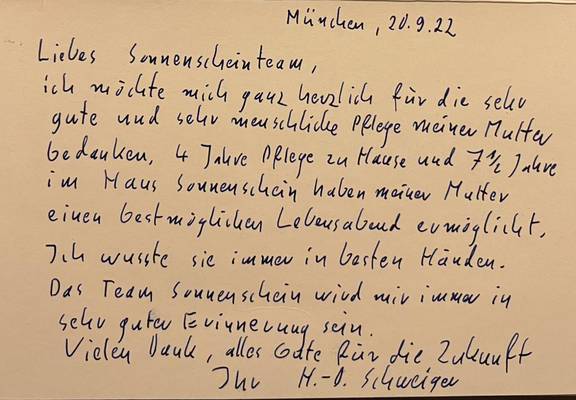 München, 20.9.22
Liebes Sonnenscheinteam,
ich möchte mich ganz herzlich für die sehr
gute und sehr menschliche Pflege meiner Mutter
bedanken, 4 Jahre Pflege zu Hause und 7 1/2 Jahre
im Haus Sonnenschein haben meiner Mutter
einen bestmöglichen Lebensabend ermöglicht.
Ich wusste sie immer in besten Händen.
Das Team Sonnenschein wird mir immer in
sehr guter Erinnerung sein.
Vielen Dank, alles Gute für die Zukunft
Ihr H.-D. Schweiger